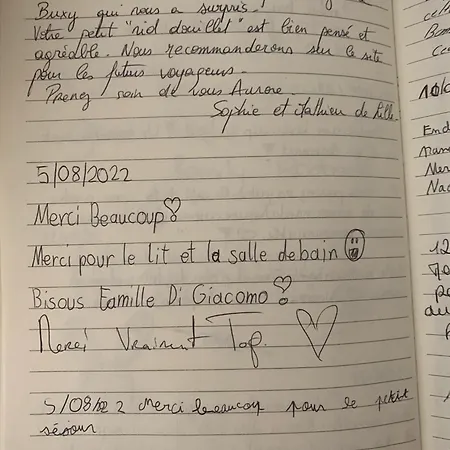 Buxy qui nous a surpris !
Votre petit "nid douillet" est bien pensé et
agréable. Nous recommanderons sur le site
pour les futurs voyageurs.
Prenez soin de vous Aurore.
Sophie et Mathieu de Lille.
5/08/2022
Merci Beaucoup!
Merci pour le lit et la salle de bain
Bisous Famille Di Giacomo!
Merci Vraiment Top.
5/08/2022 Merci beaucoup pour le petit
séjour
10/0
12